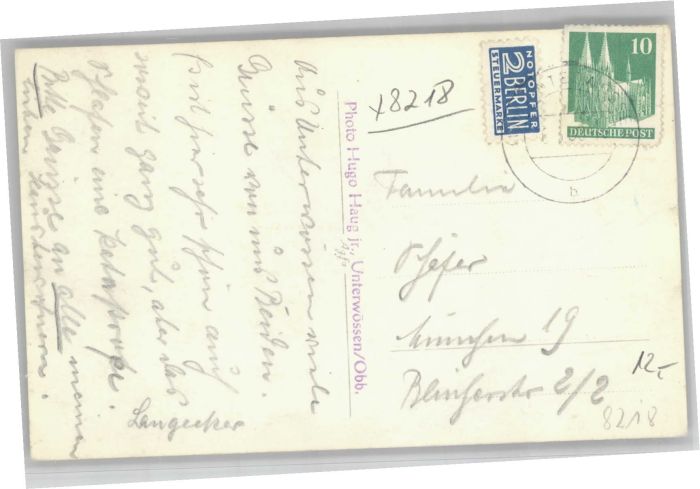 Aus Unterwössen viele
Grüsse von uns Beiden.
Es ist hier sehr schön auch
sonst ganz gut, aber das
Schlafen eine Katastrophe.
Bitte Grüsse an alle meinen
lieben
Langecker
Photo Hugo Haug jr., Unterwössen/Obb.
x8218
NOTOPFER
2 BERLIN
STEUERMARKE
10
DEUTSCHE POST
b
Familie
Schefer
München 19
2/2
12,-
8218